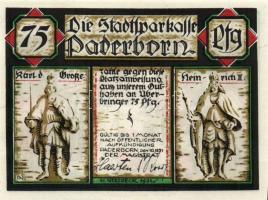 75
Die Stadtsparkasse
Paderborn.
Pfg
Karl d Große
Hein rich II.
zahle gegen diese
Platzanweisung
aus unserem Gut-
haben an Über-
bringer 75 Pfg.
GÜLTIG BIS 1 MONAT
NACH ÖFFENTLICHER
AUFKÜNDIGUNG
PADERBORN, DEN 10.1921
DER MAGISTRAT